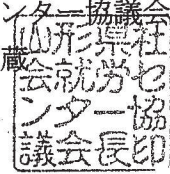 ンター協議会
蔵
山形県社
会就労セ
ンター協
議会長印